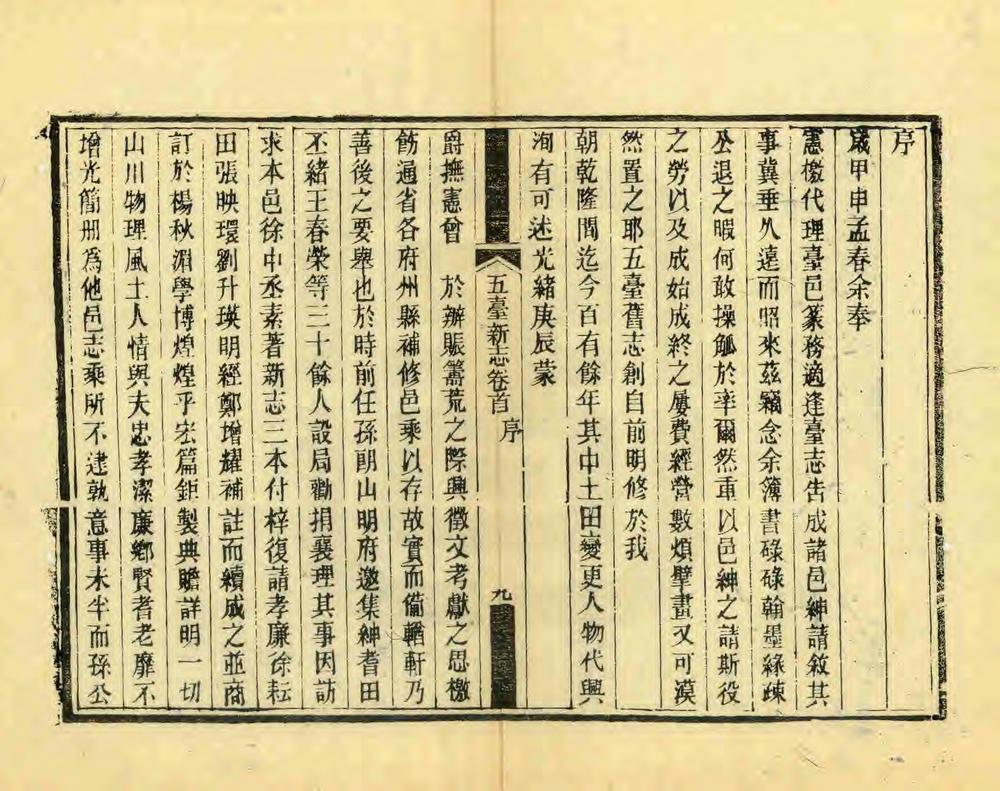 序
歲甲申孟春余奉
憲檄代理臺邑篆務適逢臺志告成諸邑紳請敘其
事冀垂久遠而昭來茲竊念余簿書碌碌翰墨緣疎
公退之暇何敢操觚於率爾然重以邑紳之請斯役
之勞以及成始成終之屢費經營數煩擘畫又可漠
然置之耶五臺舊志創自前明修於我
朝乾隆間迄今百有餘年其中土田變更人物代興
洵有可述光緒庚辰蒙
五臺新志卷首 序 九
爵撫憲曾 於辦賑籌荒之際興徵文考獻之思檄
飭通省各府州縣補修邑乘以存故實而備輶軒乃
善後之要舉也於時前任孫朗山明府邀集紳耆田
丕緒王春榮等三十餘人設局勸捐襄理其事因訪
求本邑徐中丞素著新志三本付梓復請孝廉徐耘
田張映環劉升瑛明經鄭增耀補註而續成之並商
訂於楊秋湄學博煌煌乎宏篇鉅製典贍詳明一切
山川物理風土人情與夫忠孝潔廉鄉賢耆老靡不
增光簡册為他邑志乘所不逮孰意事未半而孫公